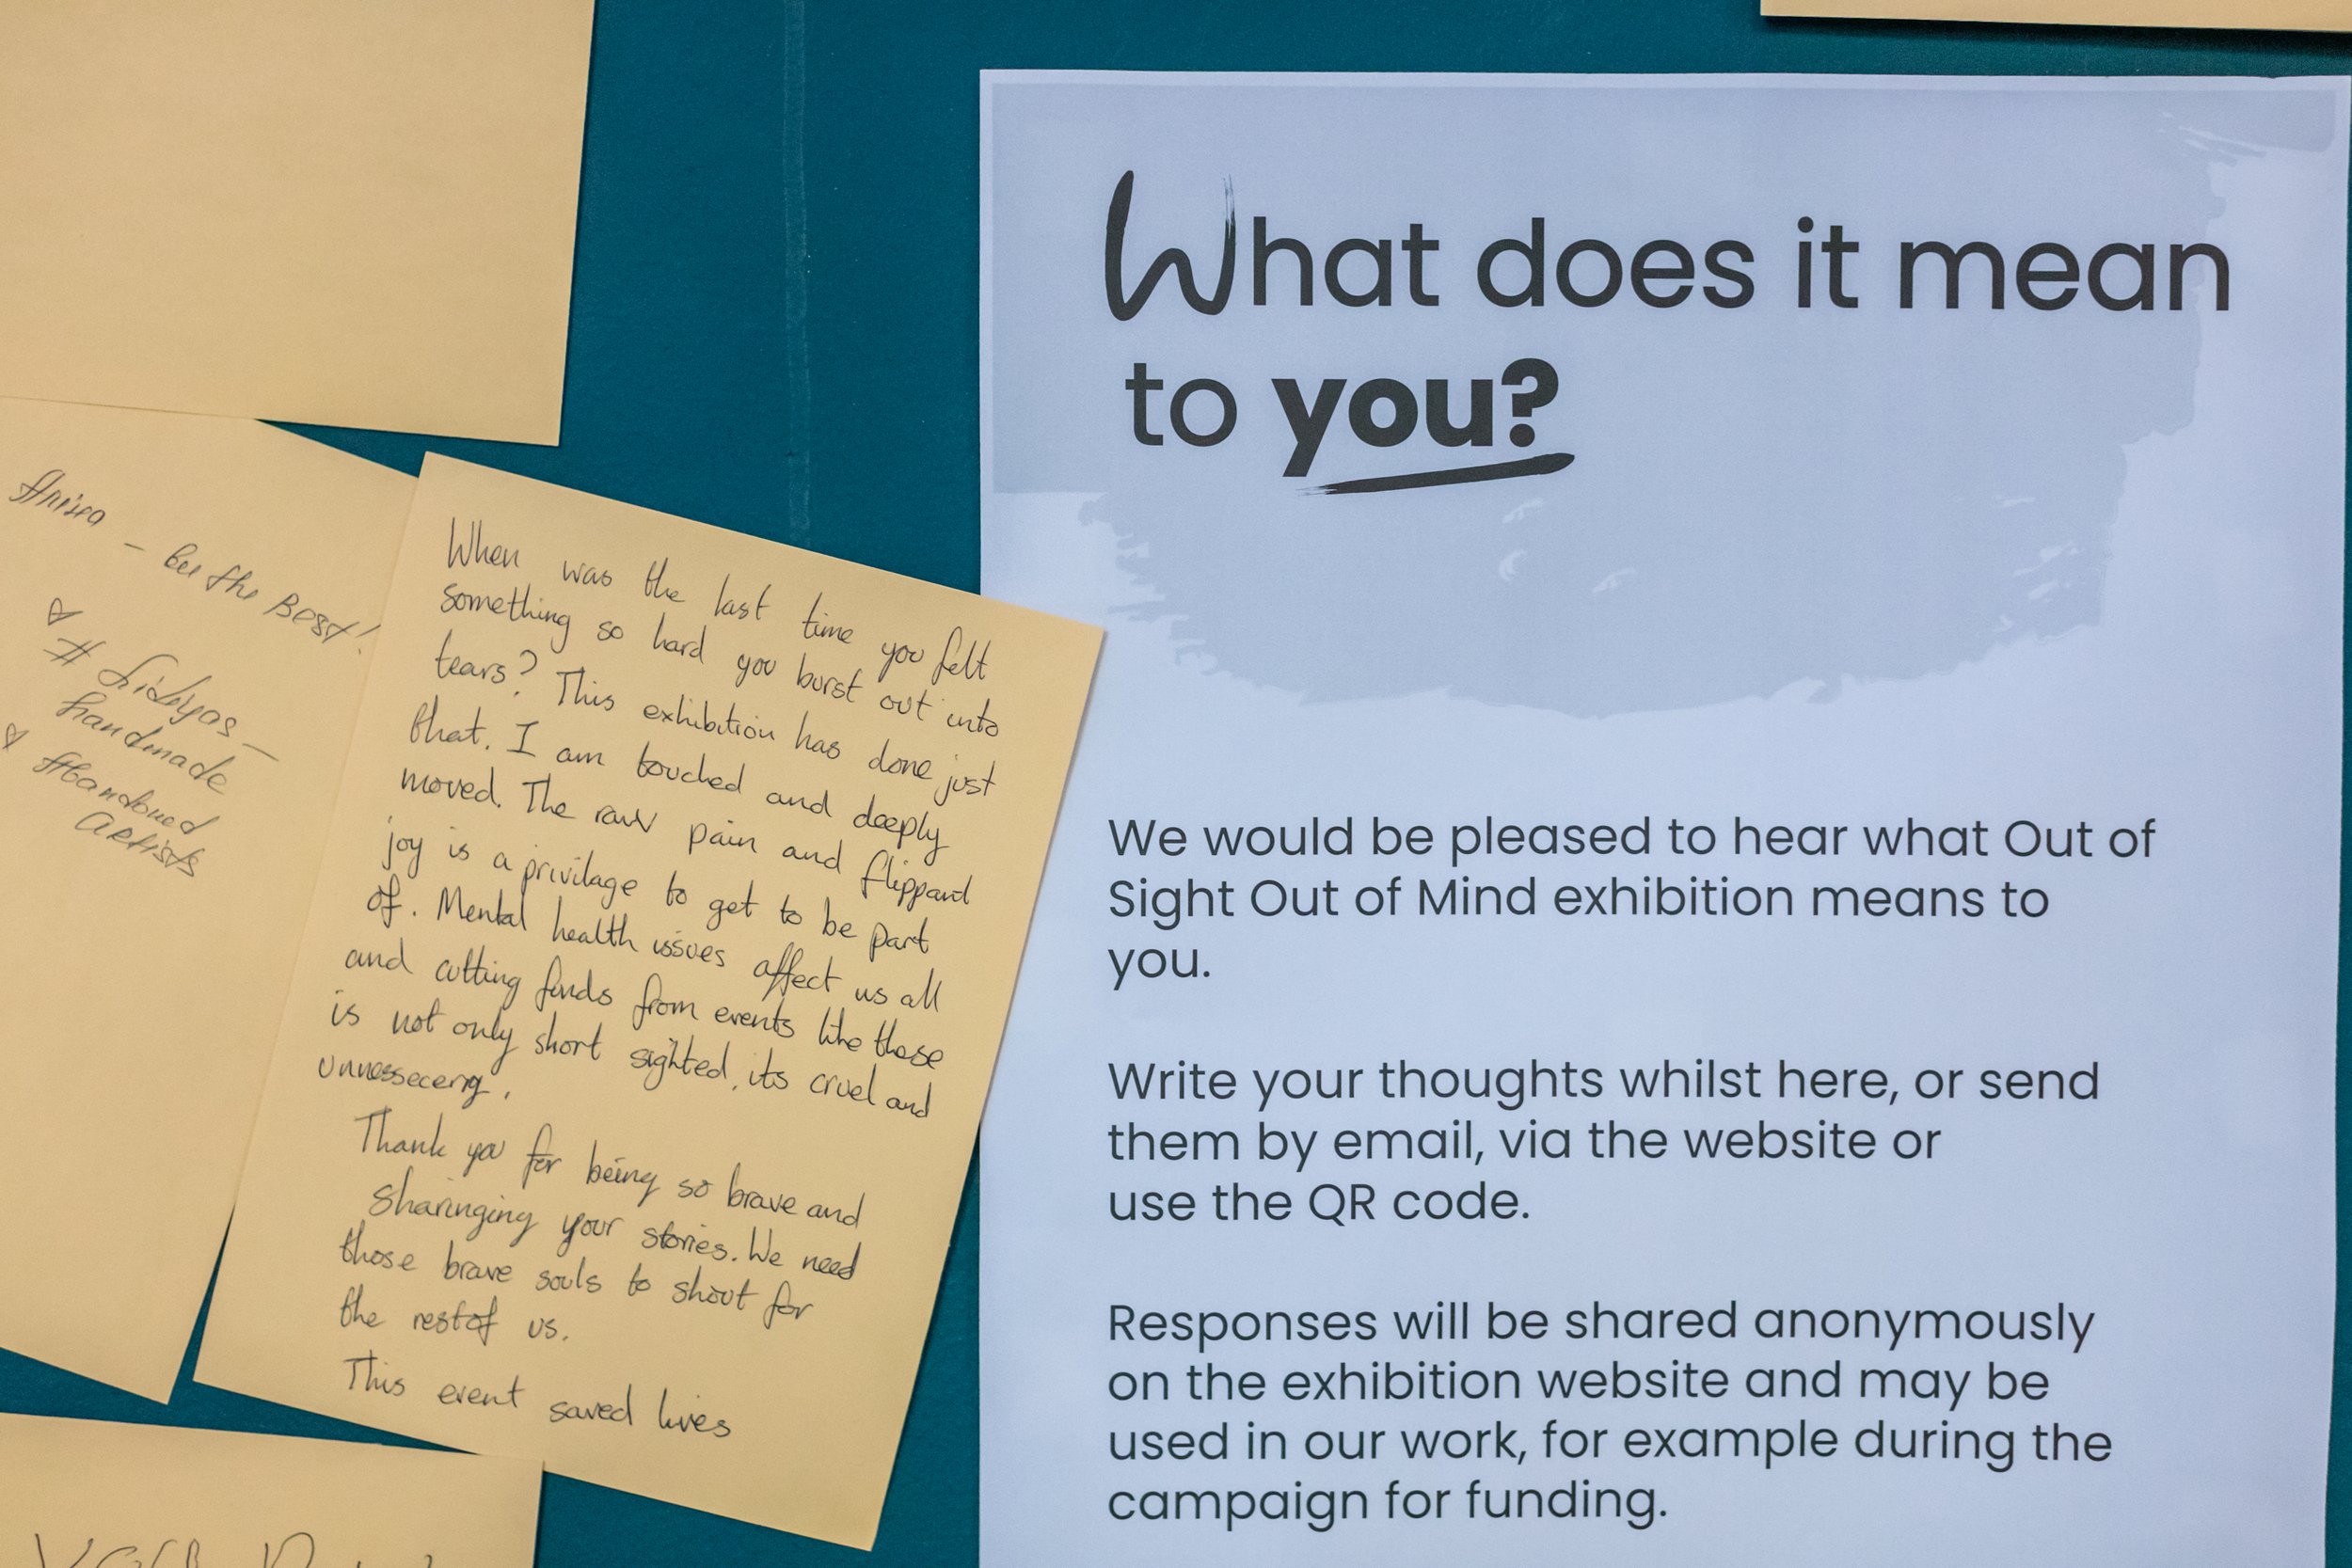 What does it mean
to you?
We would be pleased to hear what Out of
Sight Out of Mind exhibition means to
you.
Write your thoughts whilst here, or send
them by email, via the website or
use the QR code.
Responses will be shared anonymously
on the exhibition website and may be
used in our work, for example during the
campaign for funding.
When was the last time you felt
something so hard you burst out into
tears? This exhibition has done just
that. I am touched and deeply
moved. The raw pain and flippant
joy is a privilage to get to be part
of. Mental health issues affect us all
and cutting funds from events like these
is not only short sighted, its cruel and
unnessecery.
Thank you for being so brave and
sharinging your stories. We need
those brave souls to shout for
the rest of us.
This event saved lives
- be the Best!
handmade
Artists